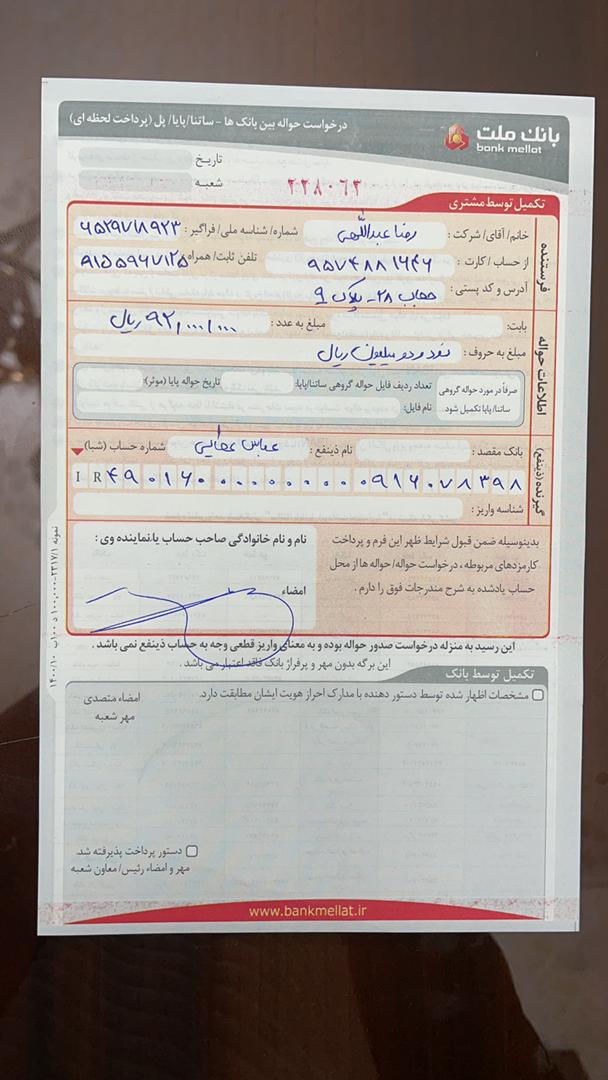 بانک ملت
bank mellat
درخواست حواله بین بانک ها - ساتنا/پایا/ پل (پرداخت لحظه ای)
تاریخ
شعبه
۲۲۸۰۶۳
تکمیل توسط مشتری
فرستنده
خانم/ آقای/ شرکت: رضا عبداللهی شماره/ شناسه ملی/ فراگیر: ۶۵۲۹۷۱۸۹۲۳
از حساب/ کارت: ۹۵۷۴۸۸۱۶۴۶ تلفن ثابت/ همراه: ۹۱۵۵۹۶۷۱۲۵
آدرس و کد پستی: ۲۸- پلاک ۹
اطلاعات حواله
بابت: مبلغ به عدد: ۹۲,۰۰۰,۰۰۰ ریال
مبلغ به حروف: نود و دو میلیون ریال
صرفاً در مورد حواله گروهی ساتنا/پایا تکمیل شود
تعداد ردیف فایل حواله گروهی ساتنا/پایا: تاریخ حواله پایا (موثر):
نام فایل:
گیرنده (ذینفع)
بانک مقصد: نام ذینفع: عباس عطایی شماره حساب (شبا)
IR ۴۹۰۱۶۰۰۰۰۰۰۰۰۰۰۹۱۶۰۷۸۳۹۸
شناسه واریز:
بدینوسیله ضمن قبول شرایط ظهر این فرم و پرداخت
کارمزدهای مربوطه، درخواست حواله/ حواله ها از محل
حساب یادشده به شرح مندرجات فوق را دارم.
نام و نام خانوادگی صاحب حساب یا نماینده وی:
امضاء
این رسید به منزله درخواست صدور حواله بوده و به معنای واریز قطعی وجه به حساب ذینفع نمی باشد.
این برگه بدون مهر و پرفراژ بانک فاقد اعتبار می باشد.
تکمیل توسط بانک
مشخصات اظهار شده توسط دستور دهنده با مدارک احراز هویت ایشان مطابقت دارد.
امضاء متصدی
مهر شعبه
دستور پرداخت پذیرفته شد.
مهر و امضاء رئیس/ معاون شعبه
www.bankmellat.ir